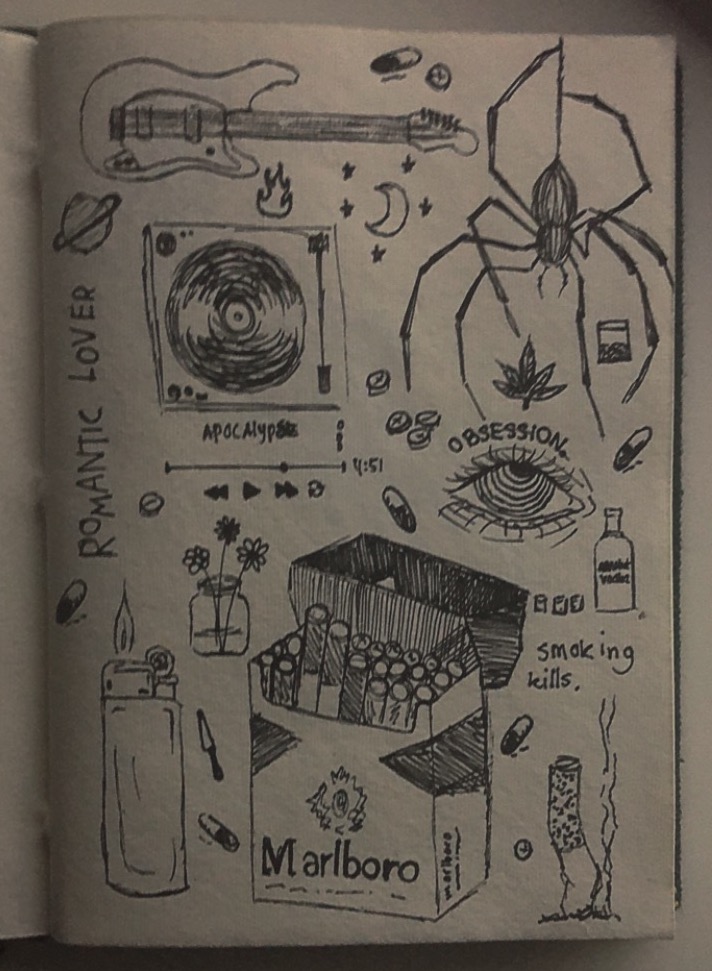 ROMANTIC LOVER
APOCALYPSE
4:51
OBSESSION.
Vodka
smoking
kills.
Marlboro
marlboro